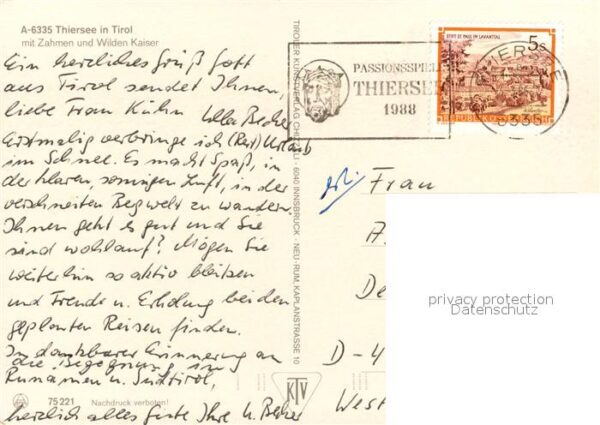 A-6335 Thiersee in Tirol
mit Zahmen und Wilden Kaiser
Ein herzliches Grüß Gott
aus Tirol sendet Ihnen,
liebe Frau Kühn Ulla Becher
Erstmalig verbringe ich (Rest) Urlaub
im Schnee. Es macht Spaß, in
der klaren, sonnigen Luft, in der
verschneiten Bergwelt zu wandern.
Ihnen geht es gut und Sie
sind wohlauf? Mögen Sie
weiterhin so aktiv bleiben
und Freude u. Erholung bei den
geplanten Reisen finden.
In dankbarer Erinnerung an
die Begegnung in
Rumänien u. Südtirol,
herzlich alles Gute Ihre U. Becher
75 221 Nachdruck verboten!
TIROLER KUNSTVERLAG CHIZZALI · 6040 INNSBRUCK - NEU-RUM, KAPLANSTRASSE 10
KTV
PASSIONSSPIELE
THIERSEE
1988
STIFT ST. PAUL IM LAVANTTAL
5 S
REPUBLIK ÖSTERREICH
THIERSEE
6335
Frau
D-4
West
privacy protection
Datenschutz